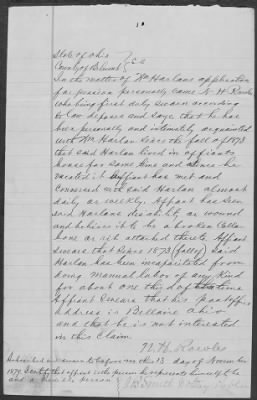 State of Ohio
County of Belmont } SS
In the matter of Wm Harlans application
for pension personally came N. H. Rowles
who being first duly sworn according
to law deposes and says that he has
been personally and intimately acquainted
with Wm Harlan since the fall of 1873
that said Harlan lived in affiants
house for some time and since he
vacated it affiant has met and
conversed with said Harlan almost
daily or weekly. Affiant has seen
said Harlans disability or wound
and believes it to be a broken Collar
bone or rib attached thereto Affiant
swears that since 1873 (fall) said
Harlan has been incapacitated from
doing manual labor of any Kind
for about one third of time
Affiant swears that his postoffice
address is Bellaire Ohio
and that he is not interested
in this Claim.
N. H. Rowles
Subscribed and sworn to before me this 13 day of November
1879.